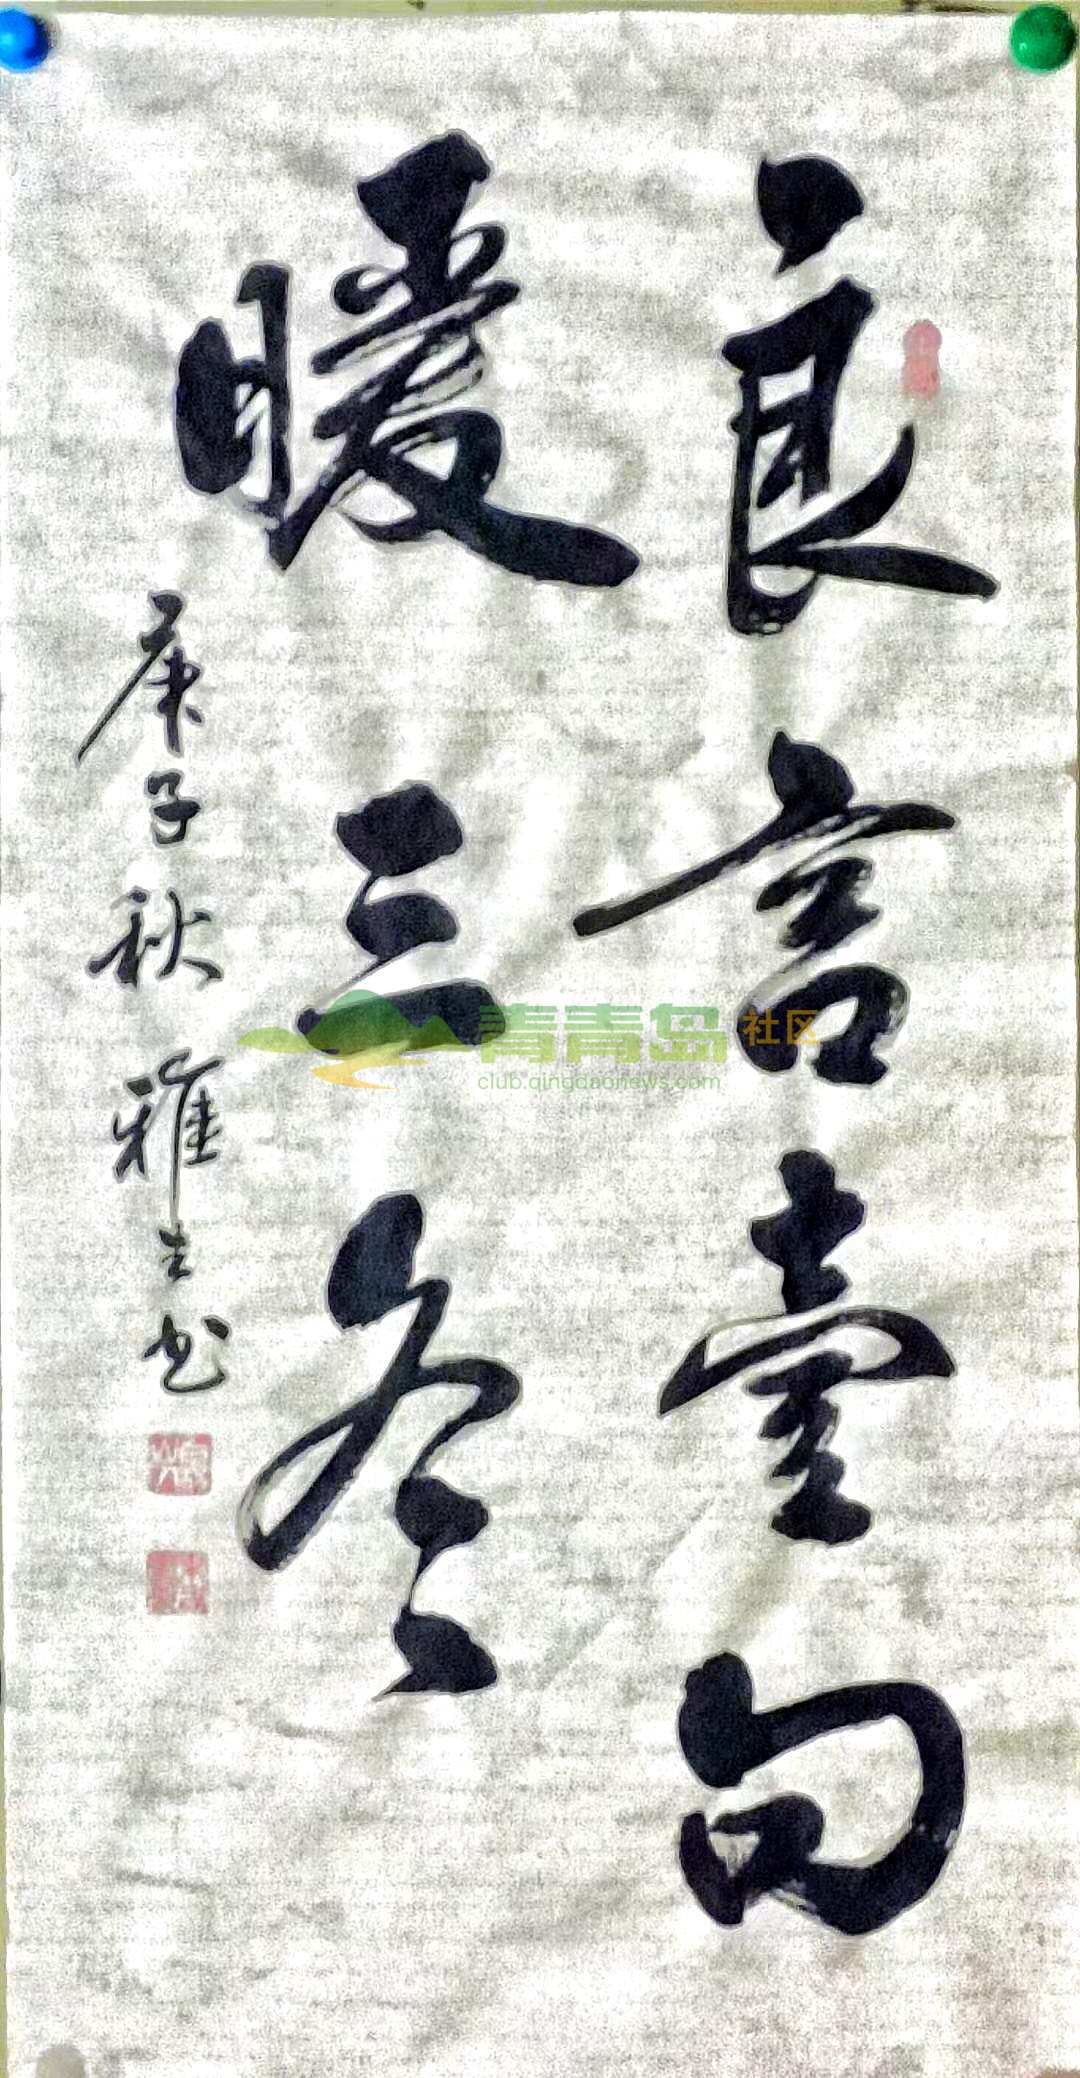 良言壹句
暖三冬
庚子秋雅士书
青青岛社区
club.qingdaonews.com